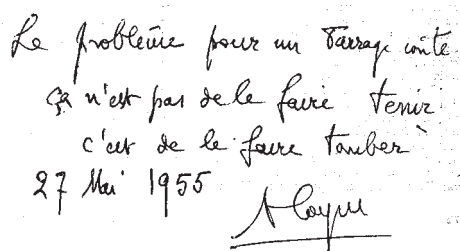 Le problème pour un barrage voûte
ça n'est pas de le faire tenir
c'est de le faire tomber
27 Mai 1955